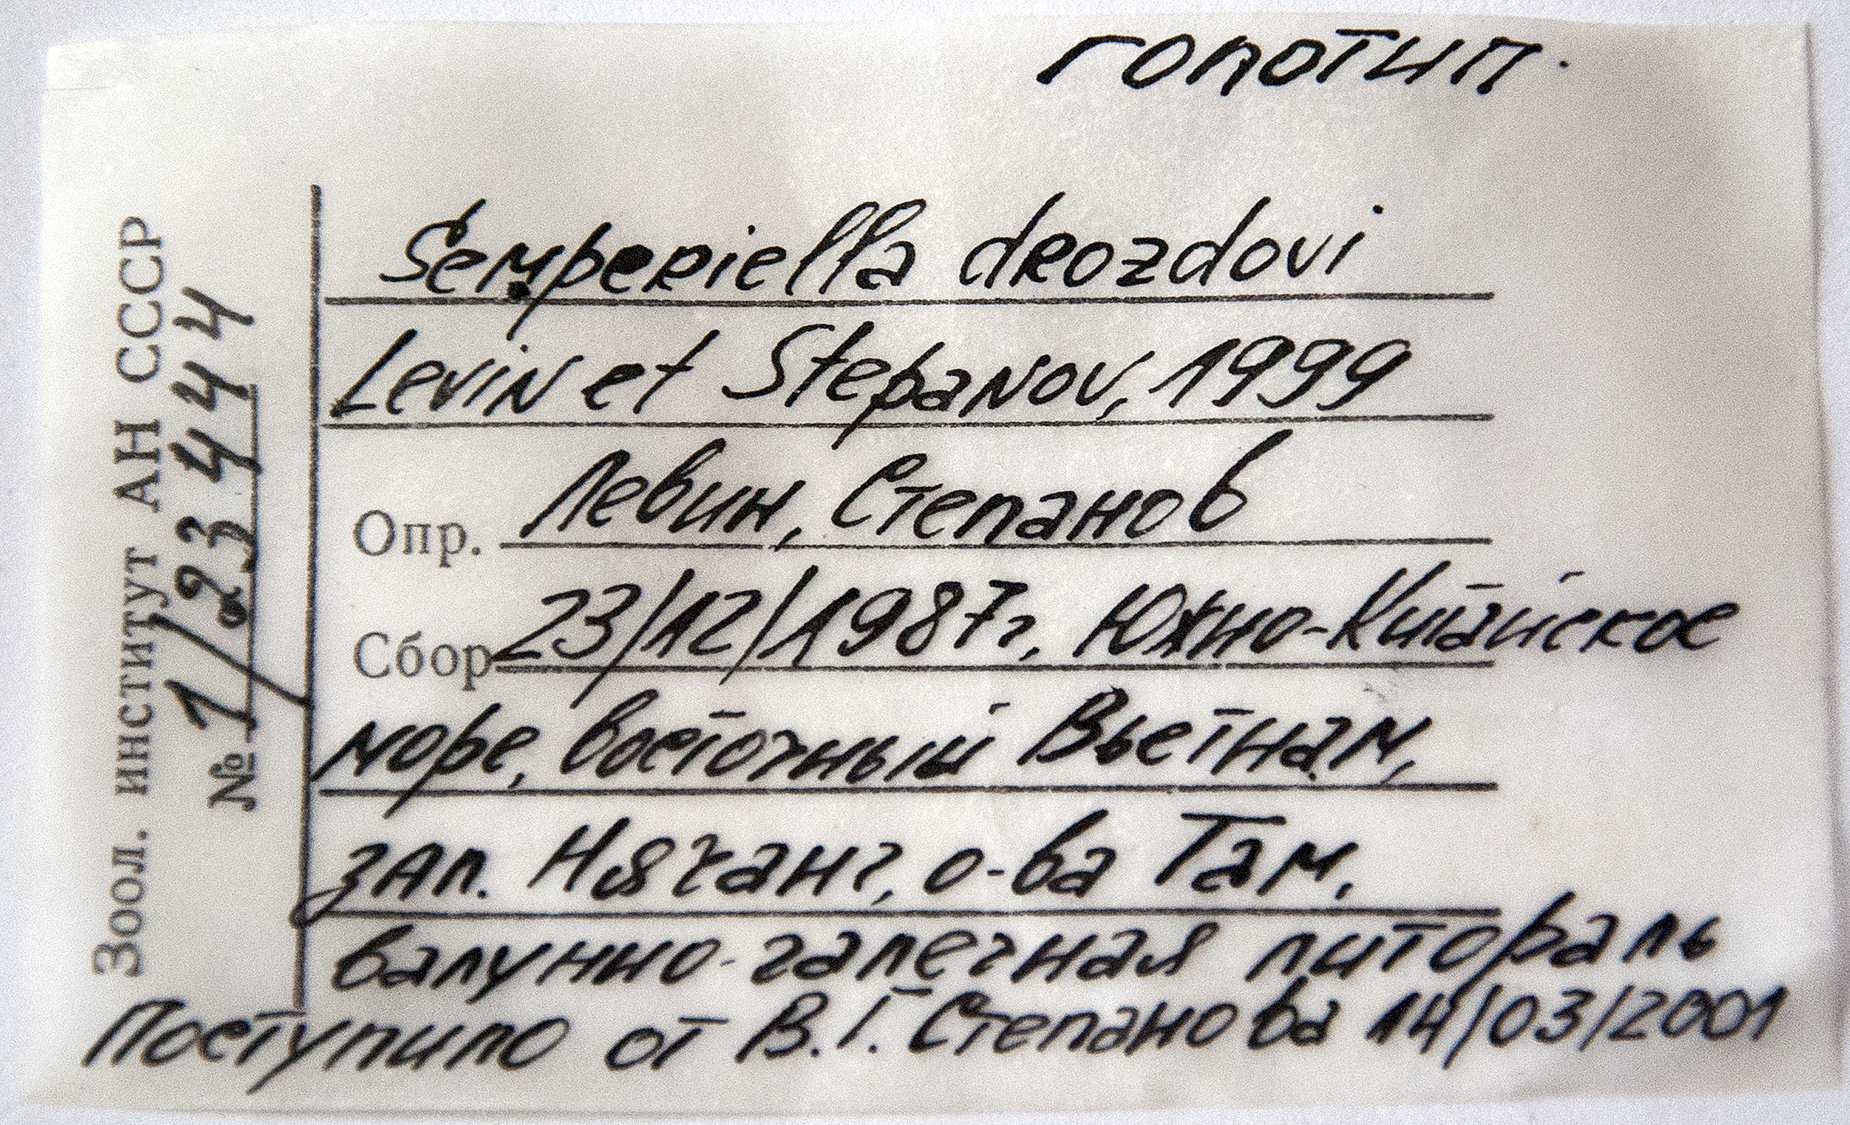 голотип.
Зоол. институт АН СССР
№ 1/23444
Semperiella drozdovi
Levin et Stepanov, 1999
Опр. Левин, Степанов
Сбор 23/12/1987г, Южно-Китайское
море, восточный Вьетнам,
зал. Нячанг, о-ва Там,
валунно-галечная литораль
Поступило от В.Г. Степанова 14/03/2001